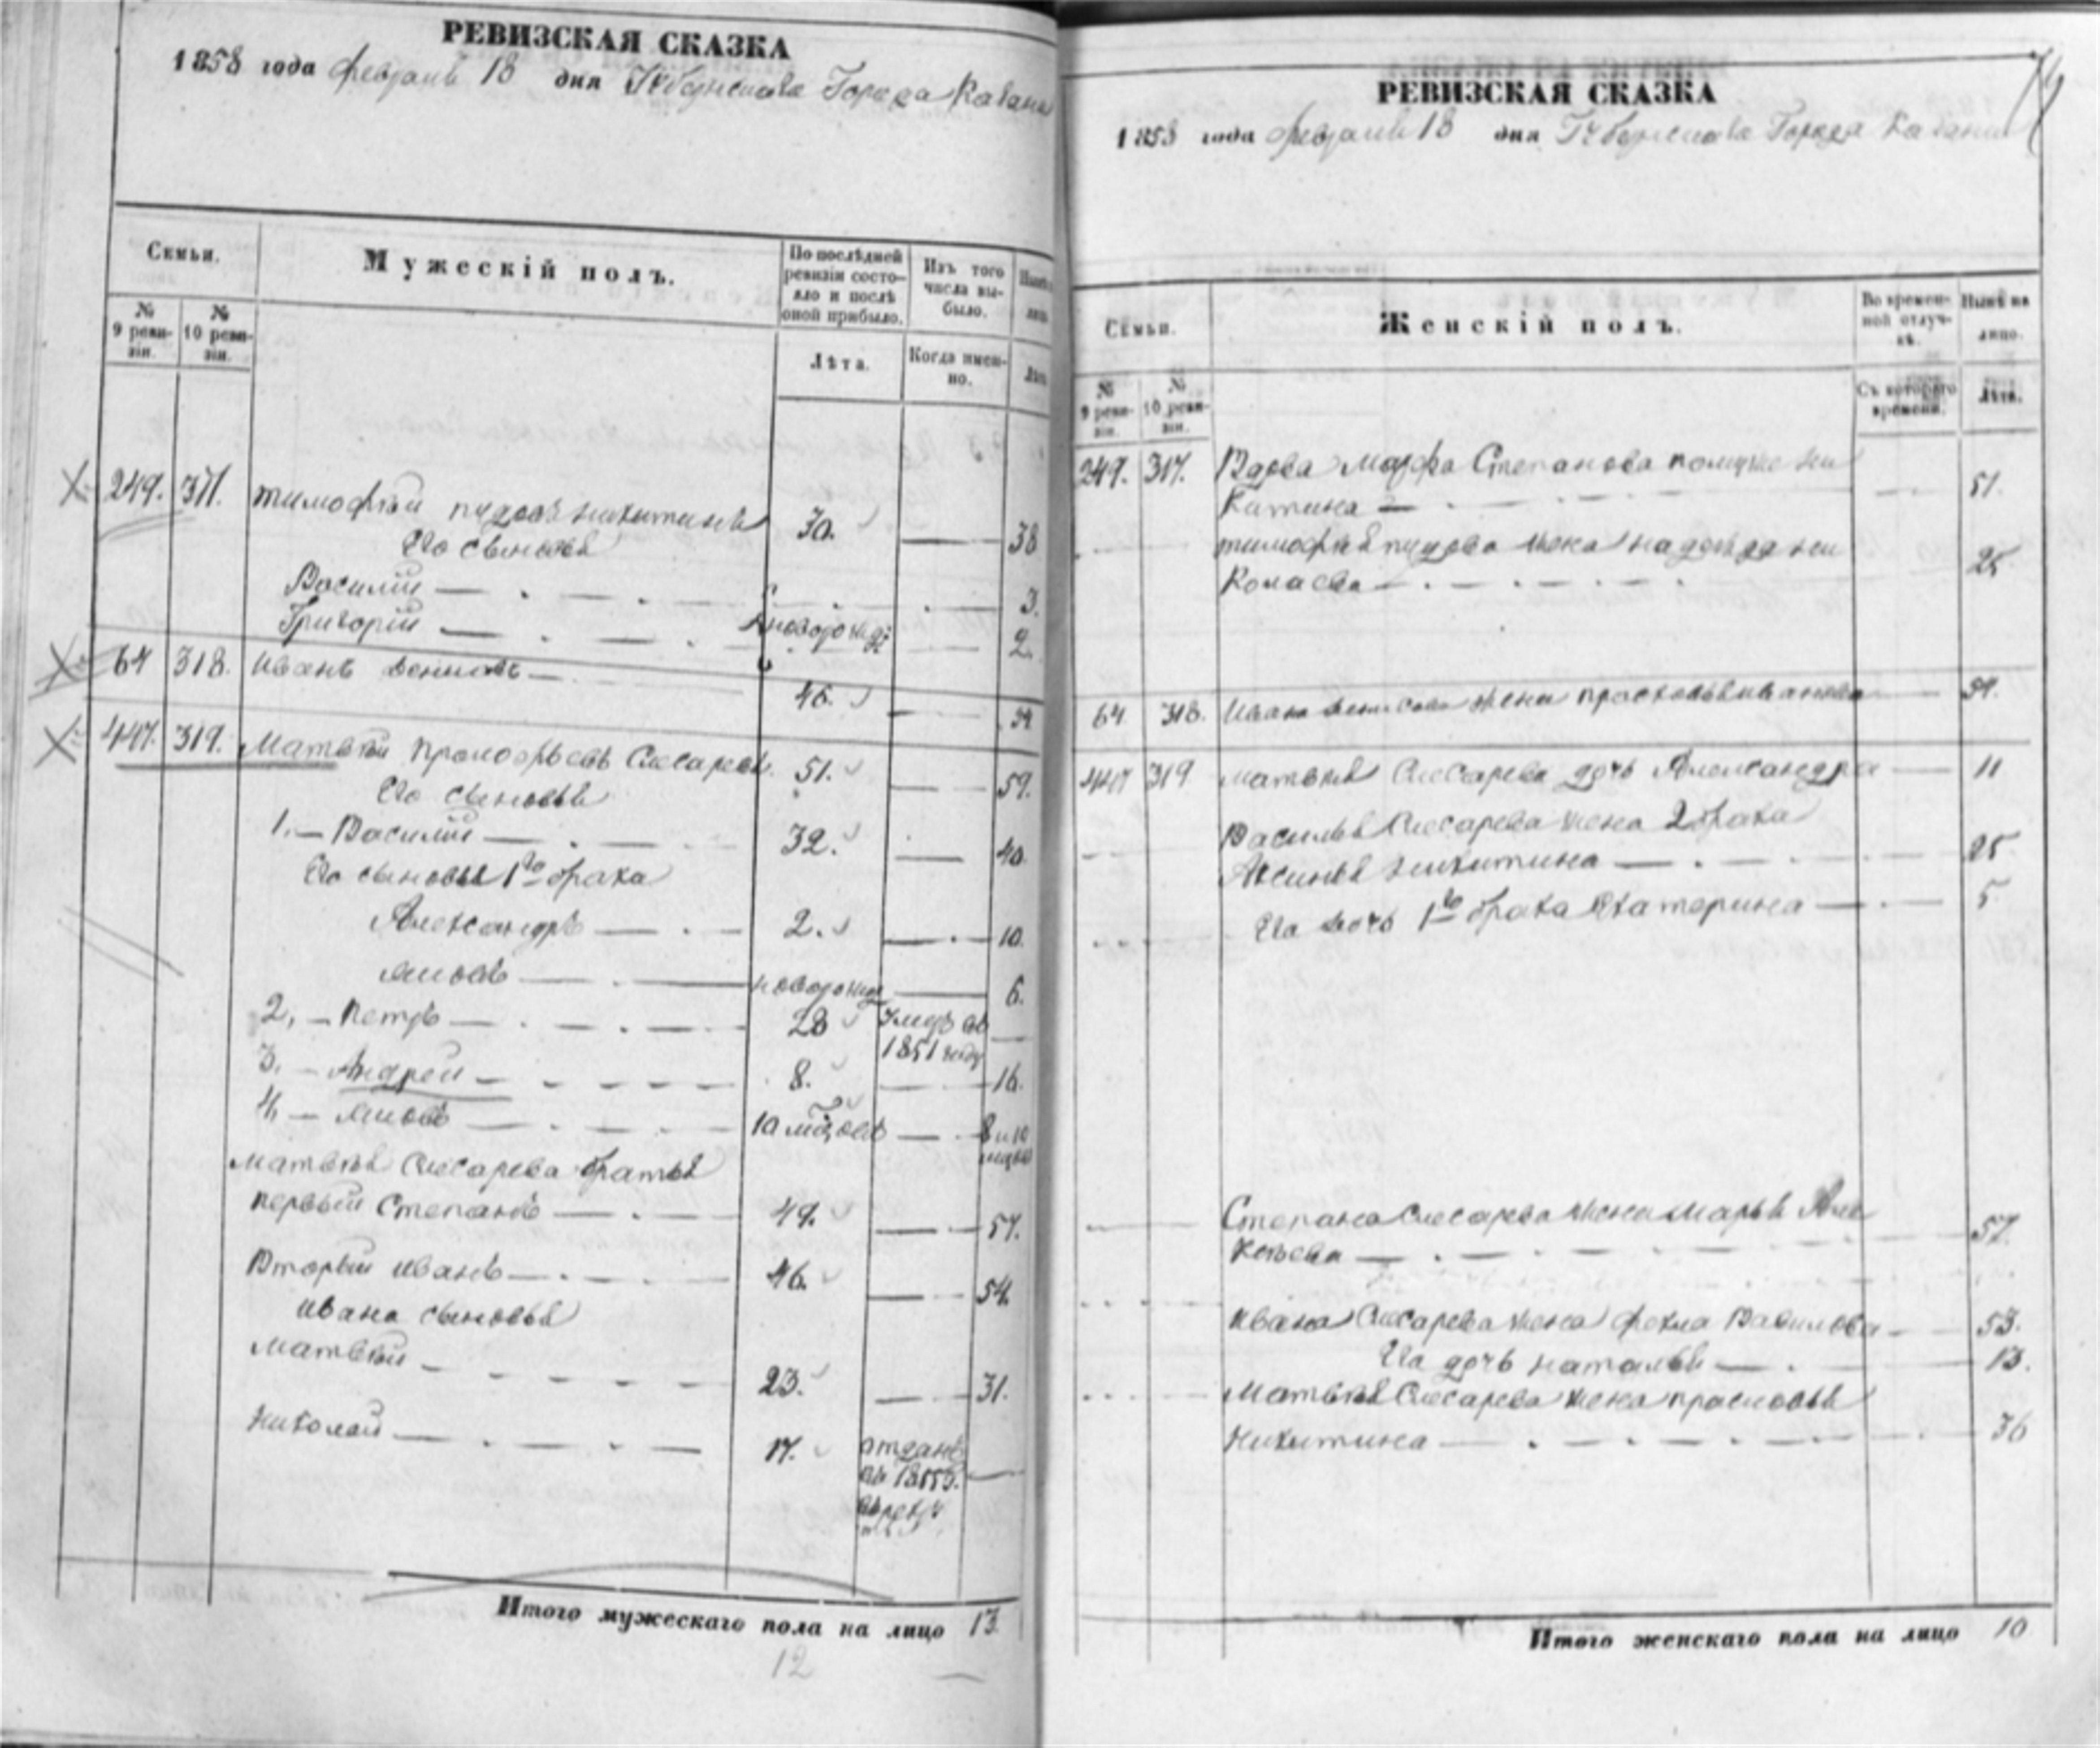 РЕВИЗСКАЯ СКАЗКА
1858 года февраля 18 дня Губернскаго Города Казани
Семьи.
Мужескій полъ.
По послѣдней ревизіи состо-
яло и послѣ
оной прибыло.
Изъ того
числа вы-
было.
№
9 реви-
зіи.
№
10 реви-
зіи.
Лѣта.
Когда имен-
но.
249. 317. Тимофѣй пудовъ никитинъ 30. 38
Его сыновья
Василій 3.
Григорій новорожд: 2.
64 318. Иванъ Денисовъ 46.
447. 319. Матвѣй Прокофьевъ Слесаревъ. 51. 59.
Его сыновья
1. Василій 32. 40.
Его сыновья 1го брака
Александръ 2. 10.
новорожд 6.
2, Петръ 28 Умеръ въ
1851 году
3. Андрей 8. 16.
4, 10 8 и 10
Матвѣя Слесарева братья
первый Степанъ 49. 57.
Вторый Иванъ 46. 54.
Ивана сыновья
Матвѣй 23. 31.
Николай 17. отданъ
въ 1855 г.
въ рекру
Итого мужескаго пола на лицо 13
12
РЕВИЗСКАЯ СКАЗКА
1858 года февраля 18 дня Губернскаго Города Казани
Семьи.
Женскій полъ.
Во времен-
ной отлуч-
кѣ.
Нынѣ на
лицо.
№
9 реви-
зіи.
№
10 реви-
зіи.
Съ котораго
времени.
Лѣта.
249. 317. Вдова Марфа Степанова помуже Ни
китина 51.
Тимофея пудова жена надежда ни
колаева 25
64 318. Ивана Денисова жена прасковья иванова 39.
447 319 Матвѣя Слесарева дочь Александра 11
Василья Слесарева жена 2 брака
Аксинья никитина 25
Его дочь 1го брака Катерина 5
Степана Слесарева жена Марья Але
ксѣева 57.
Ивана Слесарева жена фекла Вавилова 53.
Его дочь наталья 13.
Матвѣя Слесарева жена прасковья
Никитина 36
Итого женскаго пола на лицо 10